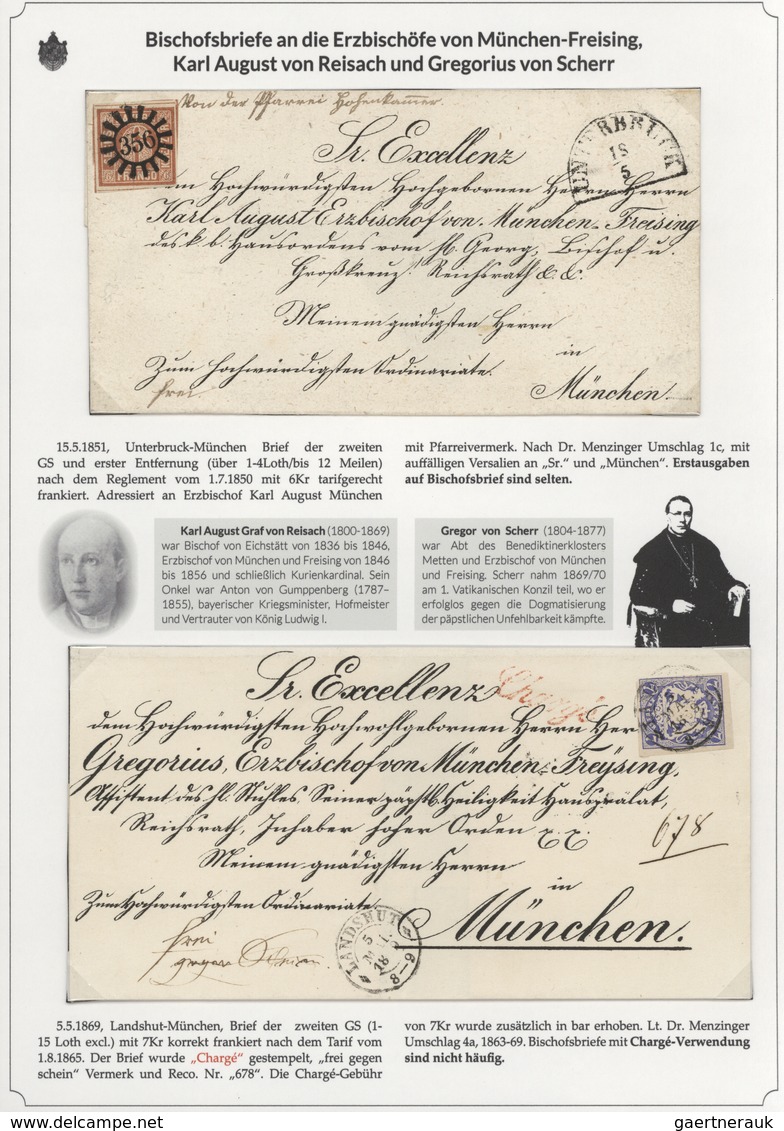 Bischofsbriefe an die Erzbischöfe von München-Freising,
Karl August von Reisach und Gregorius von Scherr
Von der Pfarrei Hohenkammer.
356
UNTERBRUCK
18
5
Sr. Excellenz
dem Hochwürdigsten Hochgebornen Herrn Herrn
Karl August Erzbischof von München-Freising
des k. b. Hausordens vom hl. Georg, Bischof u.
Großkreuz, Reichsrath &. &.
Meinem gnädigsten Herrn
in
Zum hochwürdigsten Ordinariate.
München.
frei.
15.5.1851, Unterbruck-München Brief der zweiten
GS und erster Entfernung (über 1-4Loth/bis 12 Meilen)
nach dem Reglement vom 1.7.1850 mit 6Kr tarifgerecht
frankiert. Adressiert an Erzbischof Karl August München
mit Pfarreivermerk. Nach Dr. Menzinger Umschlag 1c, mit
auffälligen Versalien an „Sr.“ und „München“. Erstausgaben
auf Bischofsbrief sind selten.
Karl August Graf von Reisach (1800-1869)
war Bischof von Eichstätt von 1836 bis 1846,
Erzbischof von München und Freising von 1846
bis 1856 und schließlich Kurienkardinal. Sein
Onkel war Anton von Gumppenberg (1787–
1855), bayerischer Kriegsminister, Hofmeister
und Vertrauter von König Ludwig I.
Gregor von Scherr (1804-1877)
war Abt des Benediktinerklosters
Metten und Erzbischof von München
und Freising. Scherr nahm 1869/70
am 1. Vatikanischen Konzil teil, wo er
erfolglos gegen die Dogmatisierung
der päpstlichen Unfehlbarkeit kämpfte.
Sr. Excellenz
Chargé
dem Hochwürdigsten Hochwohlgebornen Herrn Herrn
Gregorius, Erzbischof von München-Freysing,
Assistent des hl. Stuhles, Seiner päpstl. Heiligkeit Hausprälat,
Reichsrath, Inhaber hoher Orden
678
Meinem gnädigsten Herrn
in
Zum Hochwürdigsten Ordinariate.
München.
frei
gegen Schein.
LANDSHUT
5
18
8–9
5.5.1869, Landshut-München, Brief der zweiten GS (1-
15 Loth excl.) mit 7Kr korrekt frankiert nach dem Tarif vom
1.8.1865. Der Brief wurde „Chargé“ gestempelt, „frei gegen
schein“ Vermerk und Reco. Nr. „678“. Die Chargé-Gebühr
von 7Kr wurde zusätzlich in bar erhoben. Lt. Dr. Menzinger
Umschlag 4a, 1863-69. Bischofsbriefe mit Chargé-Verwendung
sind nicht häufig.
gaertnerauk